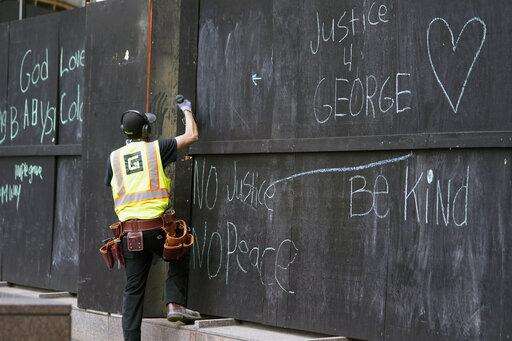 God
Love
BABys
Col
Justice
4
GEORGE
G
No Justice
No Peace
Be Kind